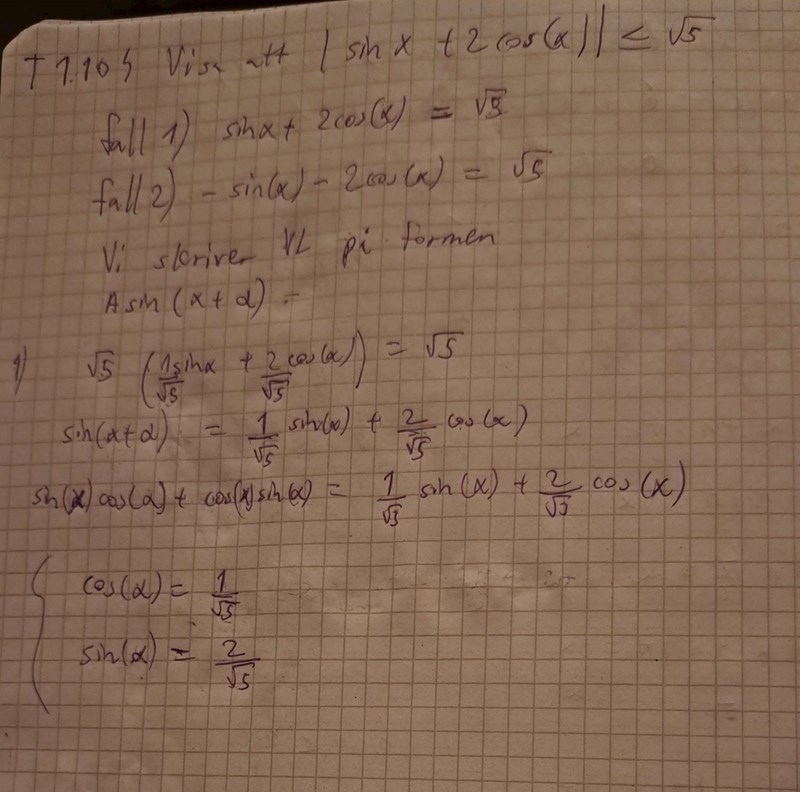 T 1.104 Visa att | sin x + 2 cos(x) | ≤ √5
fall 1) sin x + 2cos(x) = √5
fall 2) - sin(x) - 2cos(x) = √5
Vi skriver VL på formen
A sin (x + α) =
1) √5 (1/√5 sin x + 2/√5 cos(x)) = √5
sin(x+α) = 1/√5 sin(x) + 2/√5 cos(x)
sin(x) cos(α) + cos(x) sin(α) = 1/√5 sin(x) + 2/√5 cos(x)
{ cos(α) = 1/√5
sin(α) = 2/√5